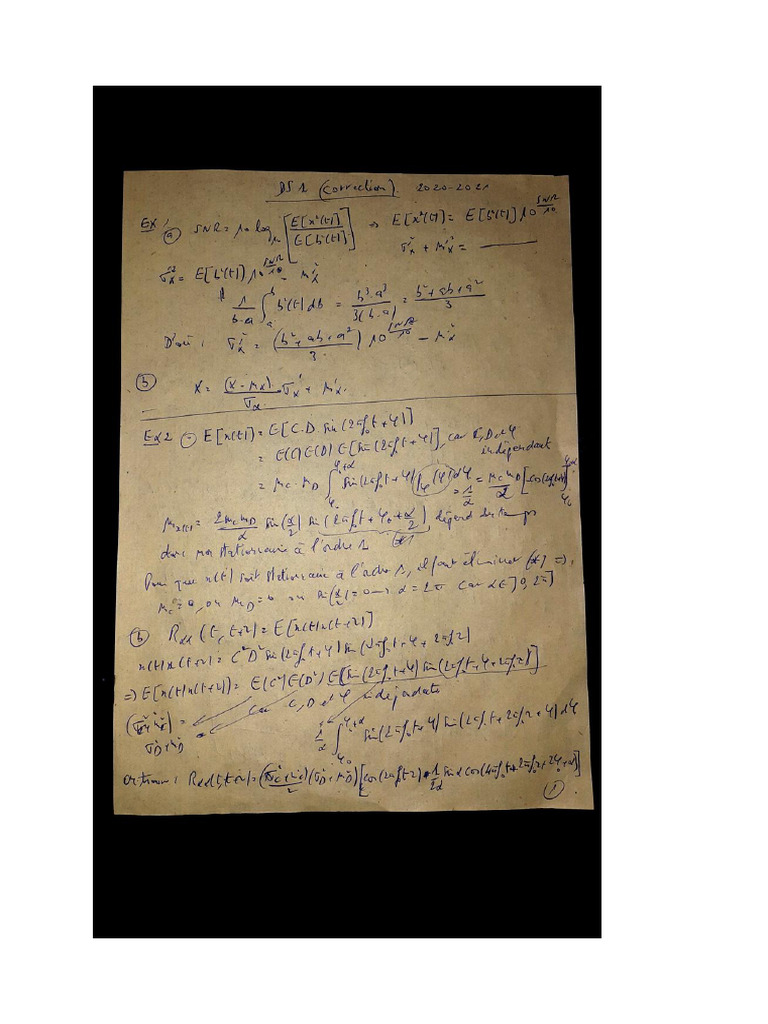 DS 1 (Correction). 2020-2021
Ex 1
(a) SNR = 10 log₁₀ [E[x²(t)] / E[b²(t)]] => E[x²(t)] = E[b²(t)] 10^(SNR/10)
σx² + μx² = ———
σx² = E[b²(t)] 10^(SNR/10) - μx²
1/(b-a) ∫_a^b b²(t) db = (b³-a³)/(3(b-a)) = (b²+ab+a²)/3
D'où : σx² = ((b²+ab+a²)/3) 10^(SNR/10) - μx²
(b) X = (X-μx)/σx σx' + μx'
Ex 2 E[x(t)] = E[C.D sin(2πf₀t+φ)]
= E(C) E(D) E[sin(2πf₀t+φ)], car C, D et φ indépendant
= μC . μD ∫_φ₀^(φ₀+α) sin(2πf₀t+φ) fφ(φ) dφ
= 1/α
μx(t) = (2μCμD/α) sin(α/2) sin(2πf₀t+φ₀+α/2), dépend du temps
donc non stationnaire à l'ordre 1 (*)
Pour que x(t) soit stationnaire à l'ordre 1, il faut éliminer (*) =>
μC=0, ou μD=0 ou sin(α/2)=0 => α=2π car α∈]0,2π]
(b) Rxx(t,t+τ) = E[x(t)x(t+τ)]
x(t)x(t+τ) = C²D² sin(2πf₀t+φ) sin(2πf₀t+φ+2πf₀τ)
=> E[x(t)x(t+τ)] = E(C²) E(D²) E[sin(2πf₀t+φ) sin(2πf₀t+φ+2πf₀τ)]
car C, D et φ indépendants
σD²+μD²
1/α ∫_φ₀^(φ₀+α) sin(2πf₀t+φ) sin(2πf₀t+2πf₀τ+φ) dφ
on trouve : Rxx(t,t+τ) = ((σC²+μC²)/2)(σD²+μD²)[cos(2πf₀τ) 1/2α sin α cos(4πf₀t+2πf₀τ+2φ₀+α)]
(1)